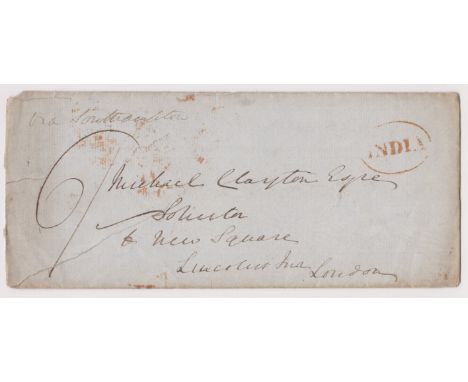 via Southampton
INDIA
Michael Clayton Esqre
Solicitor
6 New Square
Lincolns Inn
London